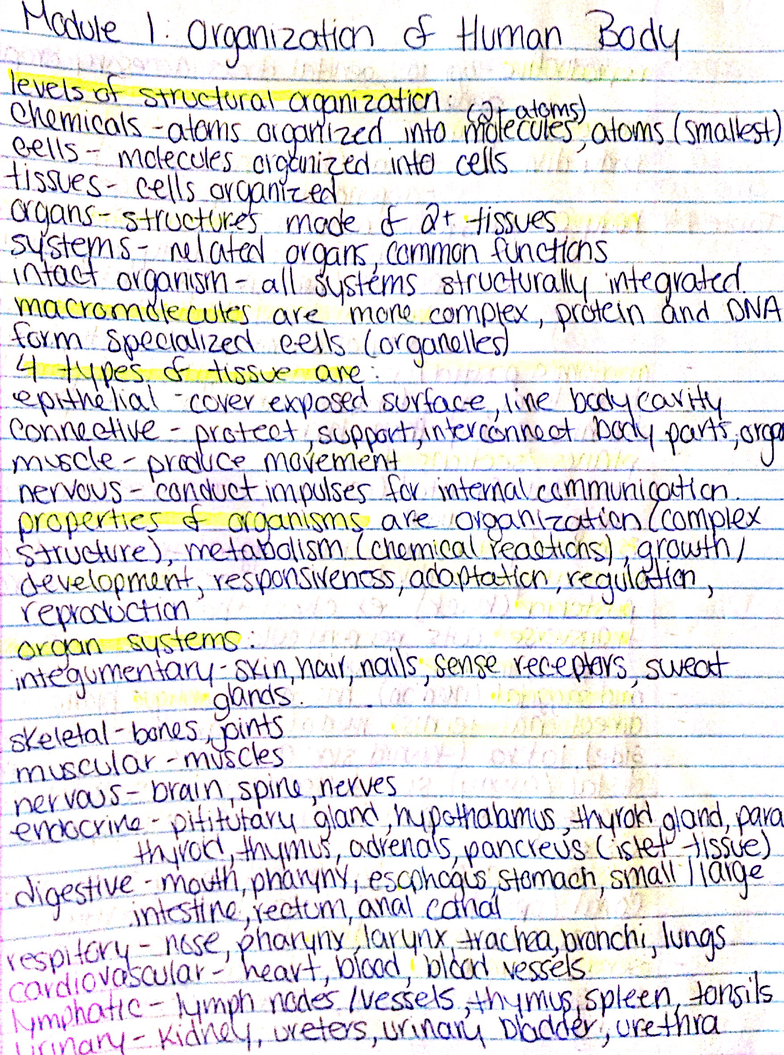 Module 1: Organization of Human Body
levels of structural organization: (2+ atoms)
chemicals - atoms organized into molecules, atoms (smallest)
cells - molecules organized into cells
tissues - cells organized
organs - structures made of 2+ tissues
systems - related organs, common functions
intact organism - all systems structurally integrated.
macromolecules are more complex, protein and DNA
form specialized cells (organelles)
4 types of tissue are:
epithelial - cover exposed surface, line body cavity
connective - protect, support, interconnect body parts, orga
muscle - produce movement
nervous - conduct impulses for internal communication.
properties of organisms are organization (complex
structure), metabolism (chemical reactions), growth/
development, responsiveness, adaptation, regulation,
reproduction
organ systems:
integumentary - skin, hair, nails, sense receptors, sweat
glands.
skeletal - bones, joints
muscular - muscles
nervous - brain, spine, nerves
endocrine - pititutary gland, hypothalamus, thyroid gland, para
thyroid, thymus, adrenals, pancreus (islet tissue)
digestive - mouth, pharynx, esophagus, stomach, small/large
intestine, rectum, anal canal
respitory - nose, pharynx, larynx, trachea, bronchi, lungs
cardiovascular - heart, blood, blood vessels.
lymphatic - lymph nodes/vessels, thymus, spleen, tonsils
urinary - kidney, ureters, urinary bladder, urethra